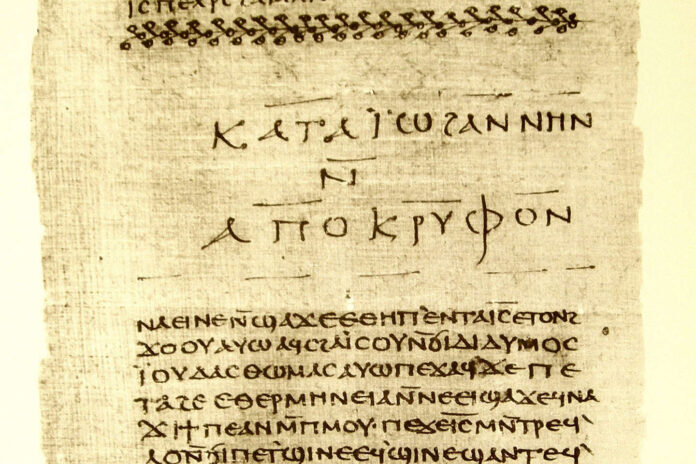 ⲓ̅ⲥ̅ ⲡⲉⲭ̅ⲥ̅ ϩⲁⲙⲏⲛ
ⲕⲁⲧⲁ ⲓ̈ⲱϩⲁⲛⲛⲏⲛ
ⲛ̅
ⲁⲡⲟⲕⲣⲩⲫⲟⲛ
ⲛⲁⲉⲓⲛⲉⲛ̅ϣⲁϫⲉⲉⲑⲏⲡ`ⲉⲛⲧⲁⲓ̅ⲥ̅ⲉⲧⲟⲛϩ
ϫⲟⲟⲩⲁⲩⲱⲁϥⲥϩⲁⲓ̈ⲥⲟⲩⲛ̅ϭⲓⲇⲓⲇⲩⲙⲟⲥ
ⲓ̈ⲟⲩⲇⲁⲥⲑⲱⲙⲁⲥⲁⲩⲱⲡⲉϫⲁϥϫⲉⲡⲉ
ⲧⲁϩⲉⲉⲑⲉⲣⲙⲏⲛⲉⲓⲁⲛ̅ⲛⲉⲉⲓϣⲁϫⲉϥⲛⲁ
ϫⲓϯⲡⲉⲁⲛⲙ̅ⲡⲙⲟⲩ·ⲡⲉϫⲉⲓ̅ⲥ̅ⲙⲛ̅ⲧⲣⲉϥ`
ⲗⲟⲛ̅ϭⲓⲡⲉⲧϣⲓⲛⲉⲉϥϣⲓⲛⲉϣⲁⲛⲧⲉϥ`